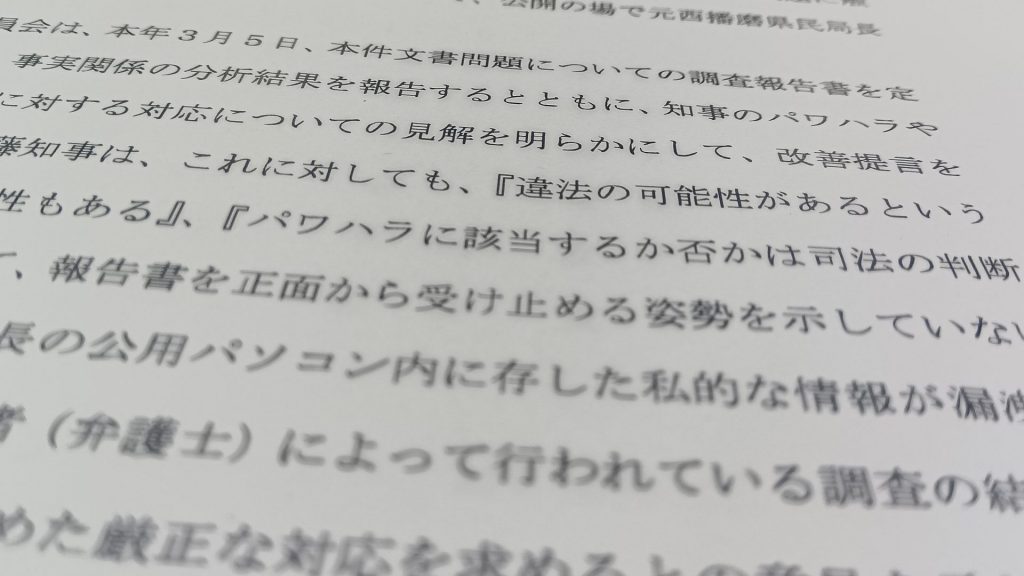 、公開の場で元西播磨県民局長
員会は、本年３月５日、本件文書問題についての調査報告書を定
事実関係の分析結果を報告するとともに、知事のパワハラや
に対する対応についての見解を明らかにして、改善提言を
藤知事は、これに対しても、『違法の可能性があるという
性もある』、『パワハラに該当するか否かは司法の判断
、報告書を正面から受け止める姿勢を示していない
長の公用パソコン内に存した私的な情報が漏洩
者（弁護士）によって行われている調査の結
めた厳正な対応を求めるとの意見